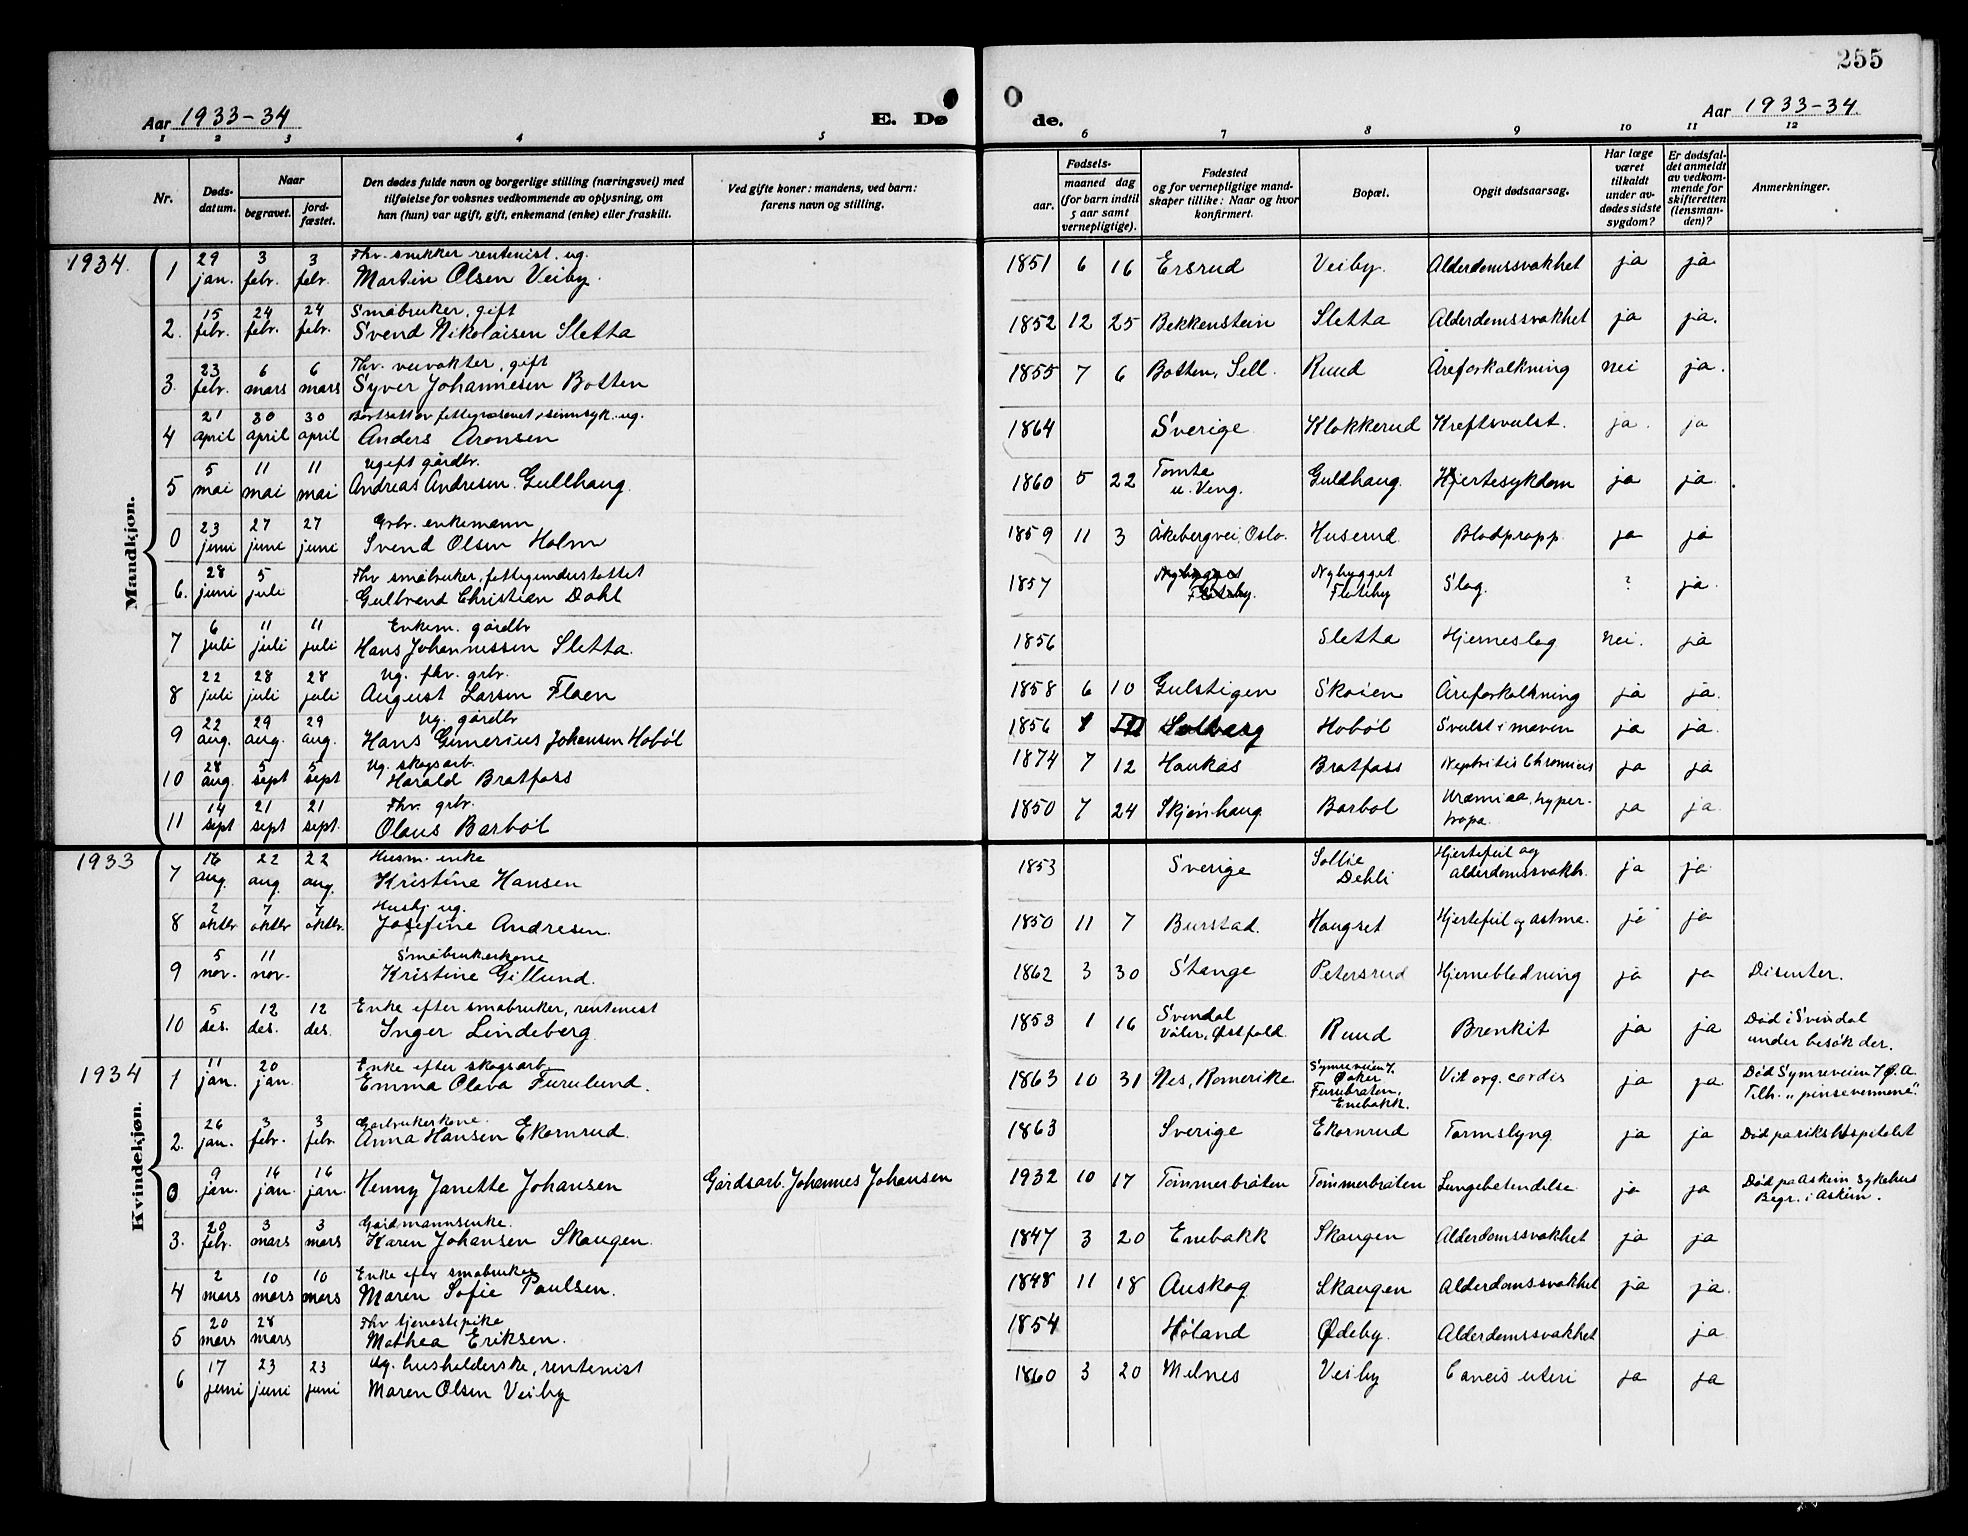 255
Aar 1933-34 E. Dø de. Aar 1933-34.
1 2 3 4 5 6 7 8 9 10 11 12
Nr. Døds-datum. Naar begravet. jord-fæstet. Den dødes fulde navn og borgerlige stilling (næringsvei) med tilføielse for voksnes vedkommende av oplysning, om han (hun) var ugift, gift, enkemand (enke) eller fraskilt. Ved gifte koner: mandens, ved barn: farens navn og stilling. Fødsels- aar. maaned dag (for barn indtil 5 aar samt vernepligtige). Fødested og for vernepligtige mandskaper tillike: Naar og hvor konfirmert. Bopæl. Opgit dødsaarsag. Har læge været tilkaldt under avdødes sidste sygdom? Er dødsfaldet anmeldt av vedkommende for skifteretten (lensmanden)? Anmerkninger.
Mandkjøn.
1934.
1 29 jan. 3 febr. 3 febr. Fhv. snikker rentenist. ug. Martin Olsen Veiby. 1851 6 16 Ersrud Veiby. Alderdomssvakhet ja ja.
2. 15 febr. 24 febr. 24 febr. Småbruker, gift Svend Nikolaisen Sletta 1852 12 25 Bekkenstein Sletta Alderdomssvakhet ja ja.
3. 23 febr. 6 mars 6 mars Fhv. veivokter, gift Syver Johannesen Botten 1855 7 6 Botten, Sell. Ruud Åreforkalkning nei ja.
4 21 april 30 april 30 april Bortsatt av fattigvesenet, sinnsyk. ug. Anders Aronsen 1864 Sverige Klokkerud Kreftsvulst. ja. ja
5 5 mai 11 mai 11 mai Ugift gårdbr. Andreas Andresen Gullhaug. 1860 5 22 Tomta u. Veng. Guldhaug. Hjertesykdom ja ja.
0 23 juni 27 juni 27 juni Grbr. enkemann Svend Olsen Holm 1859 11 3 Åkebergvei, Oslo. Huserud Blodpropp. ja ja
6. 28 juni 5 juli Fhv småbruker, fattigunderstøttet Gulbrand Christian Dahl 1857 Nybygget Flateby. Nybygget Flateby Slag. ? ja.
7 6 juli 11 juli 11 juli Enkem. gårdbr Hans Johannessen Sletta. 1856 Sletta Hjerneslag nei. ja
8 22 juli 28 juli 28 juli Ug. fhv. grbr. August Larsen Flaen 1858 6 10 Gulstigen Skøien Åreforkalkning ja ja.
9 22 aug. 29 aug. 29 aug. Ug. gårdbr Hans Gunerius Johansen Hobøl 1856 Solberg Hobøl Svulst i maven ja ja.
10 28 aug. 5 sept 5 sept Ug. skogsarb. Harald Bratfoss 1874 7 12 Haukås Bratfoss Nephritis Chronicus ja ja
11 14 sept 21 sept 21 sept. Fhv. grbr. Olaus Barbøl 1850 7 24 Skjønhaug Barbøl Uræmiaa, hyper- tropa. ja ja.
Kvindekjøn.
1933
7 16 aug. 22 aug. 22 aug. Husm. enke Kristine Hansen 1853 Sverige Sollie Dehli Hjertefeil og alderdomssvakh. ja ja.
8 2 oktbr 7 oktbr 7 oktbr. Hushj ug. Josefine Andresen. 1850 11 7 Burstad. Haugset Hjertefeil og astma. ja ja
9 5 nov. 11 nov. Småbrukerkone Kristine Gillund. 1862 3 30 Stange Petersrud Hjerneblødning ja ja Disenter.
10 5 des. 12 des. 12 des. Enke efter småbruker, rentenist Inger Lindeberg 1853 1 16 Svendal Våler, Østfold Ruud Bronkit ja ja Død i Svindal under besøk der.
1934
1 11 jan. 20 jan. Enke efter skogsarb. Emma Olava Furulund. 1863 10 31 Nes, Romerike Symreveien 7, Øaker Furubråten, Enebakk. Vit org. cordis ja ja Død Symreveien 7 Ø.A. Tilh. "pinsevennene".
2. 26 jan. 3 febr. 3 febr Gårbrukerkone. Anna Hansen Ekornrud. 1863 Sverige Ekornrud Tarmslyng ja ja Død på rikshospitalet
0 9 jan. 16 jan. 16 jan. Henny Janette Johansen Gårdsarb. Johannes Johansen 1932 10 17 Tømmerbråten Tømmerbråten Lungebetendelse ja ja Død på Askim sykehus Begr. i Askim.
3. 20 febr. 3 mars 3 mars Gårdmannsenke. Karen Johansen Skaugen. 1847 3 20 Enebakk Skaugen Alderdomssvakhet ja ja
4 2 mars 10 mars 10 mars Enke efter småbruker Maren Sofie Paulsen. 1848 11 18 Auskog Skaugen Alderdomssvakhet ja ja.
5 20 mars 28 mars Fhv tjenestepike Mathea Eriksen. 1854 Høland Ødeby. Alderdomssvakhet ja
6 17 juni 23 juni 23 juni Ug. husholderske, rentenist Maren Olsen Veiby 1860 3 20 Melnes Veiby Cancis uteri ja ja